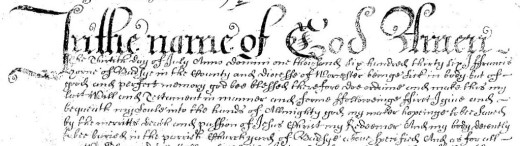 In the name of God Amen
The Thirtith day of July Anno domini one thousand six hundred thirty six I ffrancis
of in the County and diocesse of Worcester beinge sick in body but of
good and perfect memory god bee blessed therefore doe ordaine and make this my
last Will and Testament in manner and forme ffollowinge ffirst I give and
bequeath my soule into the hands of Almighty god my maker hopinge to bee saved
by the merritts death and passion of Jesus Christ my Redeemer And my body decently
to bee buried in the parish Churchyard of above specified And as for all